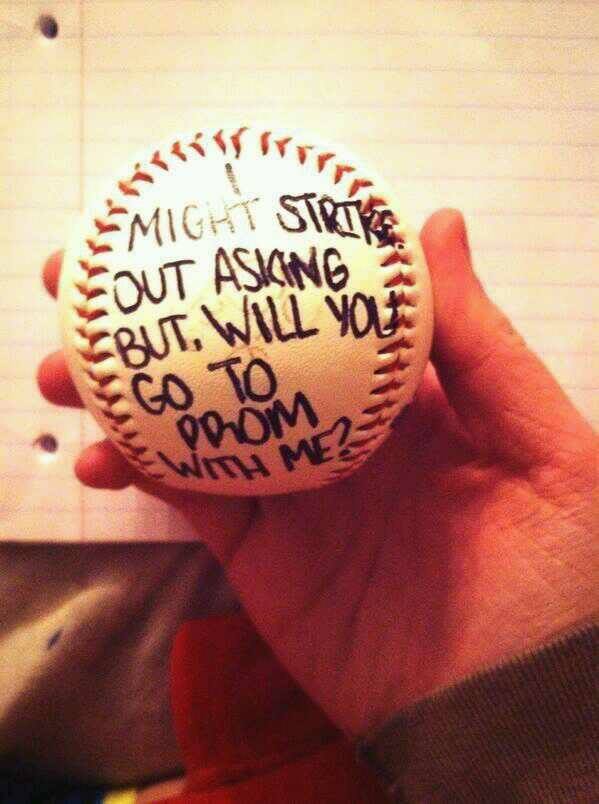 I
MIGHT STRIKE
OUT ASKING
BUT, WILL YOU
GO TO
PROM
WITH ME?